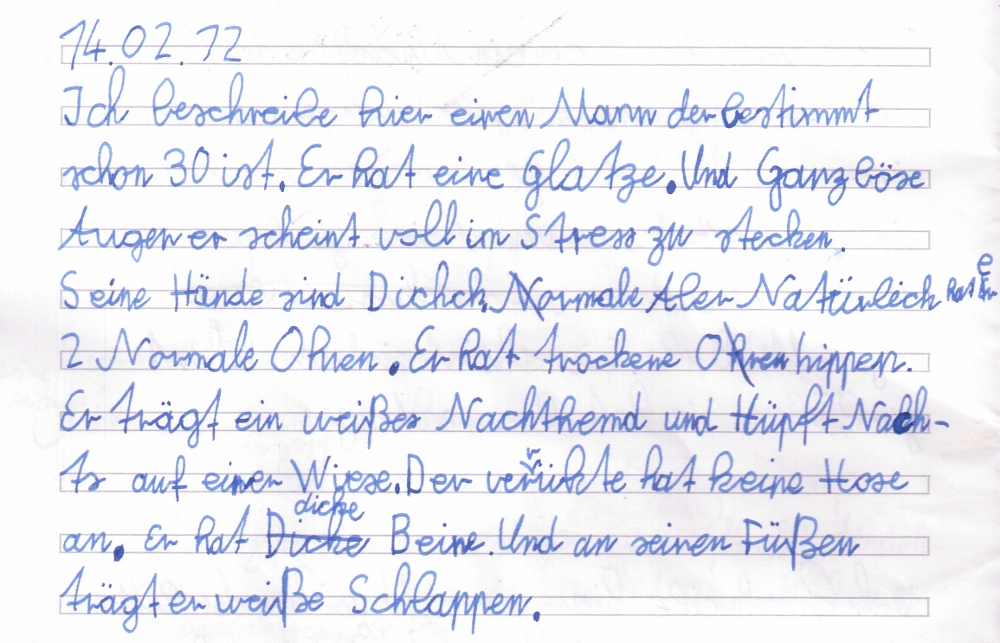 14.02.12
Ich beschreibe hier einen Mann der bestimmt
schon 30 ist. Er hat eine Glatze. Und Ganz böse
Augen er scheint voll im Stress zu stecken.
Seine Hände sind Dichch. Normale Aber Natürlich hat Er
2 Normale Ohren. Er hat trockene Ohrenhippen.
Er trägt ein weißes Nachthemd und Hüpft Nach-
ts auf einer Wiese. Der verrükte hat keine Hose
an. Er hat Dicke dicke Beine. Und an seinen Füßen
trägt er weiße Schlappen.